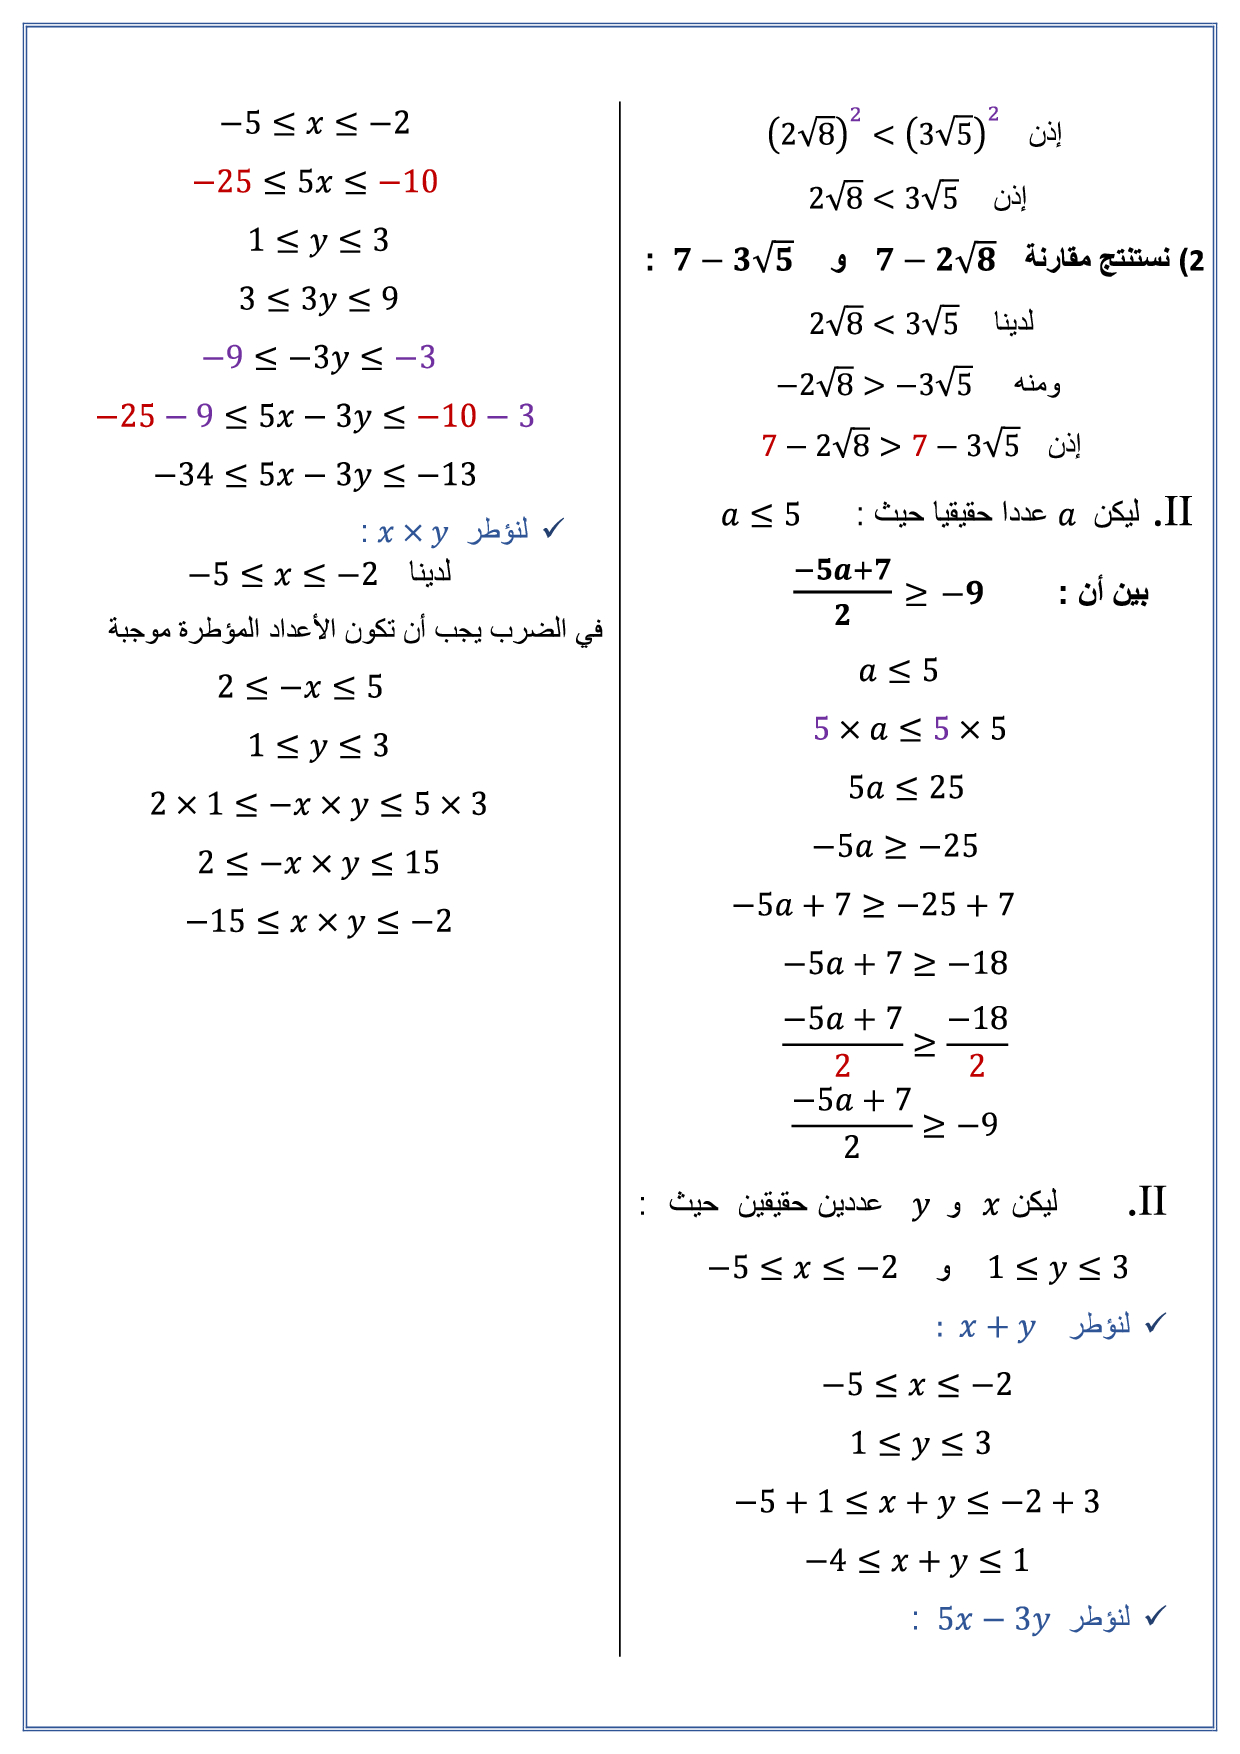 إذن (2√8)² < (3√5)²
إذن 2√8 < 3√5
2) نستنتج مقارنة 7 − 2√8 و 7 − 3√5 :
لدينا 2√8 < 3√5
ومنه −2√8 > −3√5
إذن 7 − 2√8 > 7 − 3√5
II. ليكن a عددا حقيقيا حيث : a ≤ 5
بين أن : (−5a+7)/2 ≥ −9
a ≤ 5
5 × a ≤ 5 × 5
5a ≤ 25
−5a ≥ −25
−5a + 7 ≥ −25 + 7
−5a + 7 ≥ −18
(−5a + 7)/2 ≥ −18/2
(−5a + 7)/2 ≥ −9
II. ليكن x و y عددين حقيقين حيث :
−5 ≤ x ≤ −2 و 1 ≤ y ≤ 3
✓ لنؤطر x + y :
−5 ≤ x ≤ −2
1 ≤ y ≤ 3
−5 + 1 ≤ x + y ≤ −2 + 3
−4 ≤ x + y ≤ 1
✓ لنؤطر 5x − 3y :
−5 ≤ x ≤ −2
−25 ≤ 5x ≤ −10
1 ≤ y ≤ 3
3 ≤ 3y ≤ 9
−9 ≤ −3y ≤ −3
−25 − 9 ≤ 5x − 3y ≤ −10 − 3
−34 ≤ 5x − 3y ≤ −13
✓ لنؤطر x × y :
لدينا −5 ≤ x ≤ −2
في الضرب يجب أن تكون الأعداد المؤطرة موجبة
2 ≤ −x ≤ 5
1 ≤ y ≤ 3
2 × 1 ≤ −x × y ≤ 5 × 3
2 ≤ −x × y ≤ 15
−15 ≤ x × y ≤ −2